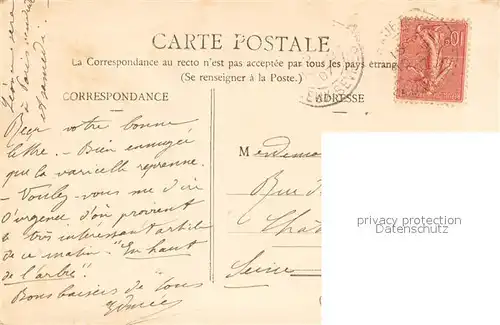 CARTE POSTALE
La Correspondance au recto n'est pas acceptée par tous les pays étrang
(Se renseigner à la Poste.)
CORRESPONDANCE
ADRESSE
à
et samedi!
Reçu votre bonne
lettre. - Bien ennuyée
que la varicelle reprenne.
- Voulez-vous me dire
d'urgence d'où provient
le très intéressant article
de ce matin "En haut
de l'arbre".
Bons baisers de tous
M
Rue
Seine
privacy protection
Datenschutz
10